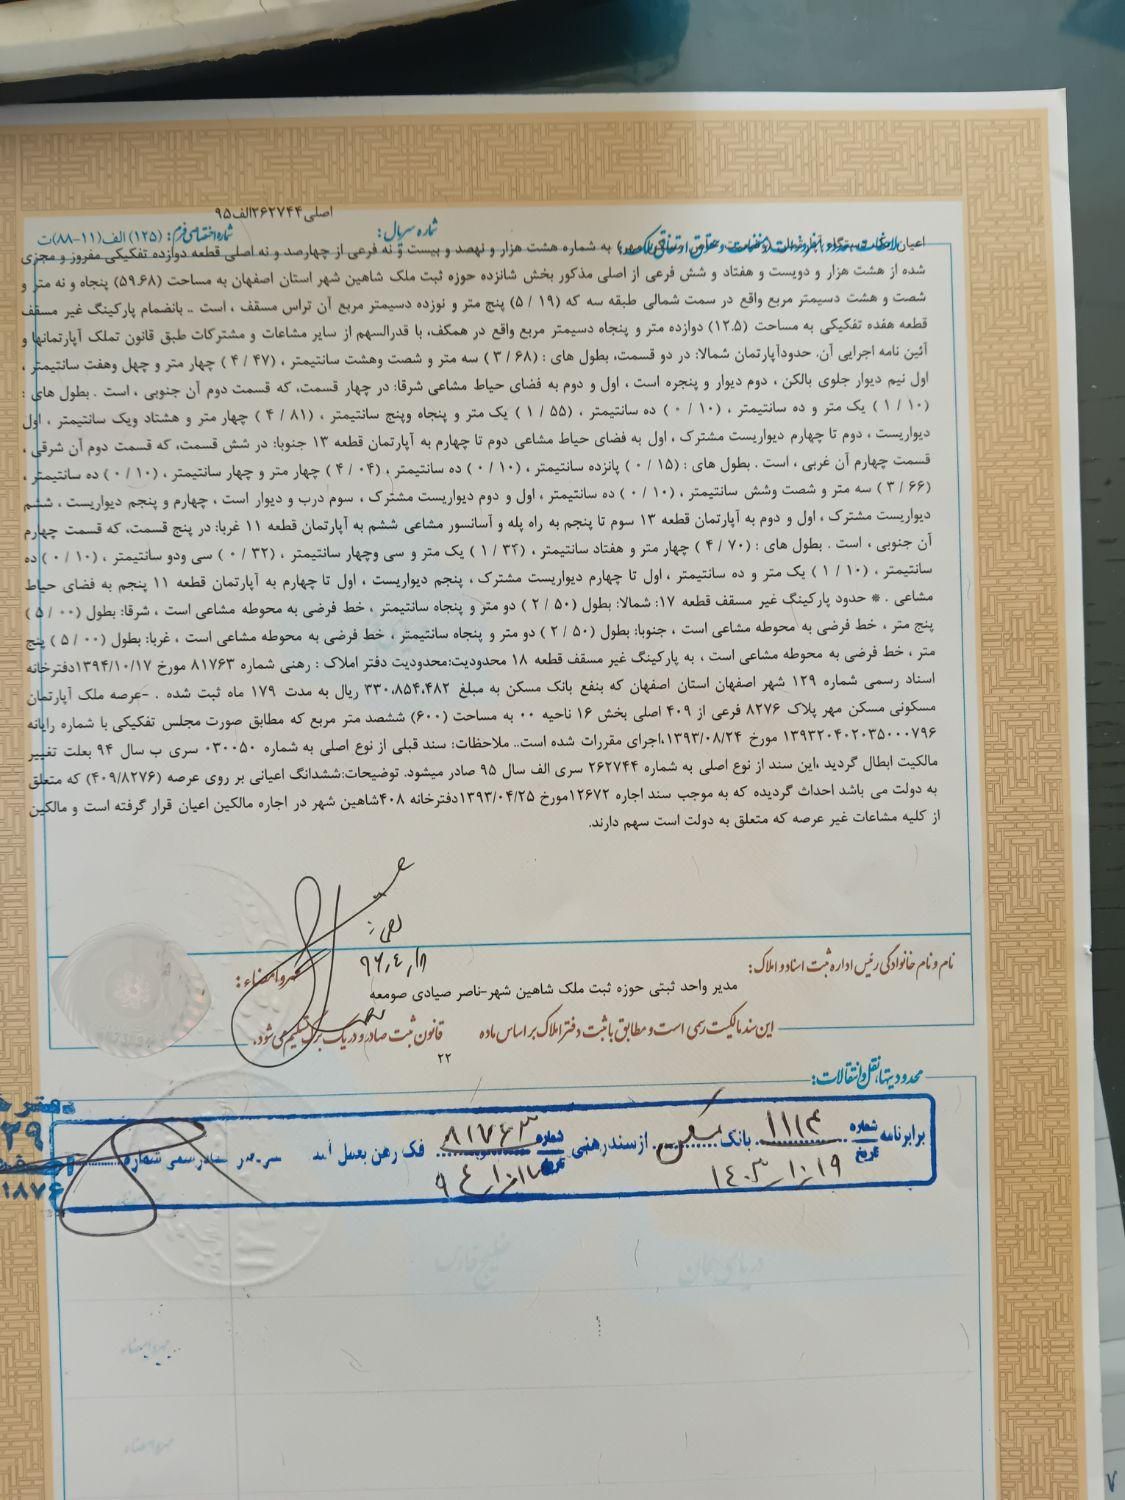 اصلی ۲۶۲۷۴۴الف۹۵
شماره سریال: شماره اختصاصی فرم: (۱۲۵) الف(۱۱-۸۸)ت
به شماره هشت هزار و نهصد و بیست و نه فرعی از چهارصد و نه اصلی قطعه دوازده تفکیکی مفروز و مجزی
شده از هشت هزار و دویست و هفتاد و شش فرعی از اصلی مذکور بخش شانزده حوزه ثبت ملک شاهین شهر استان اصفهان به مساحت (۵۹.۶۸) پنجاه و نه متر و
شصت و هشت دسیمتر مربع واقع در سمت شمالی طبقه سه که (۱۹ / ۵) پنج متر و نوزده دسیمتر مربع آن تراس مسقف ، است .. بانضمام پارکینگ غیر مسقف
قطعه هفده تفکیکی به مساحت (۱۲.۵) دوازده متر و پنجاه دسیمتر مربع واقع در همکف، با قدرالسهم از سایر مشاعات و مشترکات طبق قانون تملک آپارتمانها و
آئین نامه اجرایی آن. حدودآپارتمان شمالا: در دو قسمت، بطول های : (۶۸ / ۳) سه متر و شصت وهشت سانتیمتر ، (۴۷ / ۴) چهار متر و چهل وهفت سانتیمتر ،
اول نیم دیوار جلوی بالکن ، دوم دیوار و پنجره است ، اول و دوم به فضای حیاط مشاعی شرقا: در چهار قسمت، که قسمت دوم آن جنوبی ، است . بطول های :
(۱۰ / ۱) یک متر و ده سانتیمتر ، (۱۰ / ۰) ده سانتیمتر ، (۵۵ / ۱) یک متر و پنجاه وپنج سانتیمتر ، (۸۱ / ۴) چهار متر و هشتاد ویک سانتیمتر ، اول
دیواریست ، دوم تا چهارم دیواریست مشترک ، اول به فضای حیاط مشاعی دوم تا چهارم به آپارتمان قطعه ۱۳ جنوبا: در شش قسمت، که قسمت دوم آن شرقی ،
قسمت چهارم آن غربی ، است . بطول های : (۱۵ / ۰) پانزده سانتیمتر ، (۱۰ / ۰) ده سانتیمتر ، (۰۴ / ۴) چهار متر و چهار سانتیمتر ، (۱۰ / ۰) ده سانتیمتر ،
(۶۶ / ۳) سه متر و شصت وشش سانتیمتر ، (۱۰ / ۰) ده سانتیمتر ، اول و دوم دیواریست مشترک ، سوم درب و دیوار است ، چهارم و پنجم دیواریست ، ششم
دیواریست مشترک ، اول و دوم به آپارتمان قطعه ۱۳ سوم تا پنجم به راه پله و آسانسور مشاعی ششم به آپارتمان قطعه ۱۱ غربا: در پنج قسمت، که قسمت چهارم
آن جنوبی ، است . بطول های : (۷۰ / ۴) چهار متر و هفتاد سانتیمتر ، (۳۴ / ۱) یک متر و سی وچهار سانتیمتر ، (۳۲ / ۰) سی ودو سانتیمتر ، (۱۰ / ۰) ده
سانتیمتر ، (۱۰ / ۱) یک متر و ده سانتیمتر ، اول تا چهارم دیواریست مشترک ، پنجم دیواریست ، اول تا چهارم به آپارتمان قطعه ۱۱ پنجم به فضای حیاط
مشاعی . * حدود پارکینگ غیر مسقف قطعه ۱۷: شمالا: بطول (۵۰ / ۲) دو متر و پنجاه سانتیمتر ، خط فرضی به محوطه مشاعی است ، شرقا: بطول (۰۰ / ۵)
پنج متر ، خط فرضی به محوطه مشاعی است ، جنوبا: بطول (۵۰ / ۲) دو متر و پنجاه سانتیمتر ، خط فرضی به محوطه مشاعی است ، غربا: بطول (۰۰ / ۵) پنج
متر ، خط فرضی به محوطه مشاعی است ، به پارکینگ غیر مسقف قطعه ۱۸ محدودیت:محدودیت دفتر املاک : رهنی شماره ۸۱۷۶۳ مورخ ۱۳۹۴/۱۰/۱۷دفترخانه
اسناد رسمی شماره ۱۲۹ شهر اصفهان استان اصفهان که بنفع بانک مسکن به مبلغ ۳۳۰،۸۵۴،۴۸۲ ریال به مدت ۱۷۹ ماه ثبت شده . -عرصه ملک آپارتمان
مسکونی مسکن مهر پلاک ۸۲۷۶ فرعی از ۴۰۹ اصلی بخش ۱۶ ناحیه ۰۰ به مساحت (۶۰۰) ششصد متر مربع که مطابق صورت مجلس تفکیکی با شماره رایانه
۱۳۹۳۲۰۴۰۲۰۳۵۰۰۰۷۹۶ مورخ ۱۳۹۳/۰۸/۲۴،اجرای مقررات شده است.. ملاحظات: سند قبلی از نوع اصلی به شماره ۰۳۰۰۵۰ سری ب سال ۹۴ بعلت تغییر
مالکیت ابطال گردید ،این سند از نوع اصلی به شماره ۲۶۲۷۴۴ سری الف سال ۹۵ صادر میشود. توضیحات:ششدانگ اعیانی بر روی عرصه (۴۰۹/۸۲۷۶) که متعلق
به دولت می باشد احداث گردیده که به موجب سند اجاره ۱۲۶۷۲مورخ ۱۳۹۳/۰۴/۲۵دفترخانه ۴۰۸شاهین شهر در اجاره مالکین اعیان قرار گرفته است و مالکین
از کلیه مشاعات غیر عرصه که متعلق به دولت است سهم دارند.
نام و نام خانوادگی رئیس اداره ثبت اسناد و املاک: مهر و امضاء:
مدیر واحد ثبتی حوزه ثبت ملک شاهین شهر-ناصر صیادی صومعه
این سند مالکیت رسمی است و مطابق با ثبت دفتر املاک بر اساس ماده ۲۲ قانون ثبت صادر و در یک برگ تسلیم می‌شود.
محدودیتها، نقل و انتقالات:
برابر نامه شماره ۱۱۱۴ بانک مسکن از سند رهنی شماره ۸۱۷۶۳ فک رهن بعمل آمد
تاریخ ۱۴۰۳/۱۰/۱۹ تاریخ ۹۴/۱۰/۱۷
خلیج فارس
مهر و امضاء
مهر و امضاء